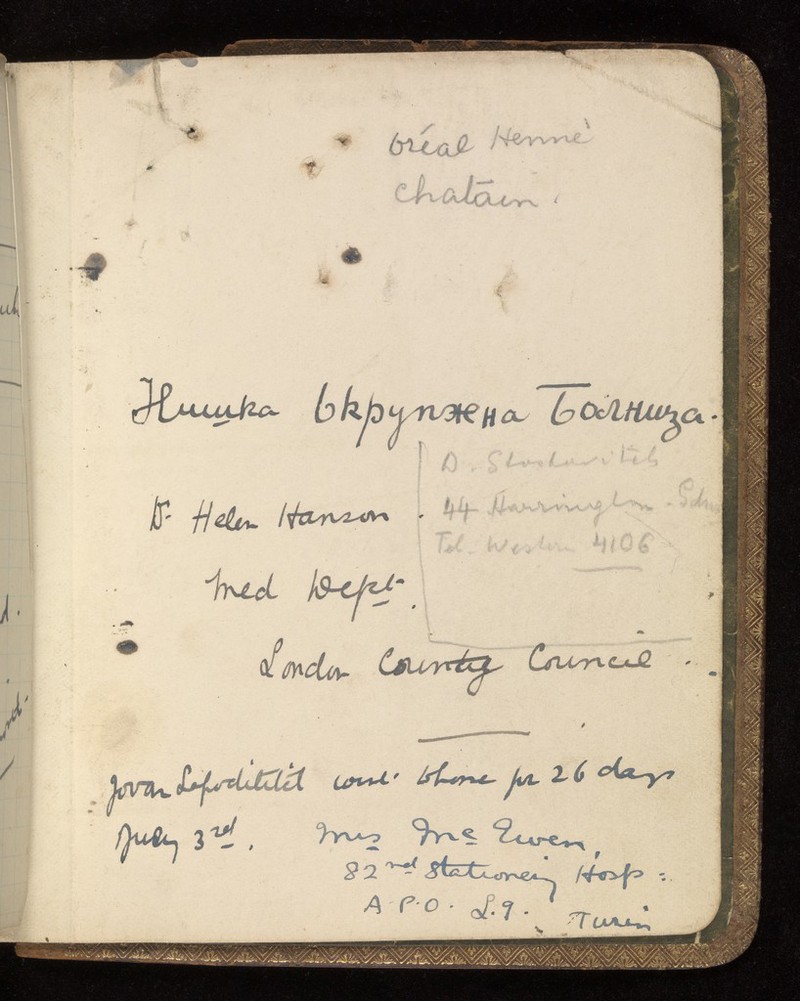 Oréal Henné
Chatain.
Нишка Окружена Болница.
D. Stoshovitch
44 Harrington - Gdns
Tel. Western 4106
Dr Helen Hanson.
Med Dept.
London County Council.
Jovan went home for 26 days
July 3rd. Mrs McEwen,
82nd Stationery Hosp:
A.P.O. L.9. Turin